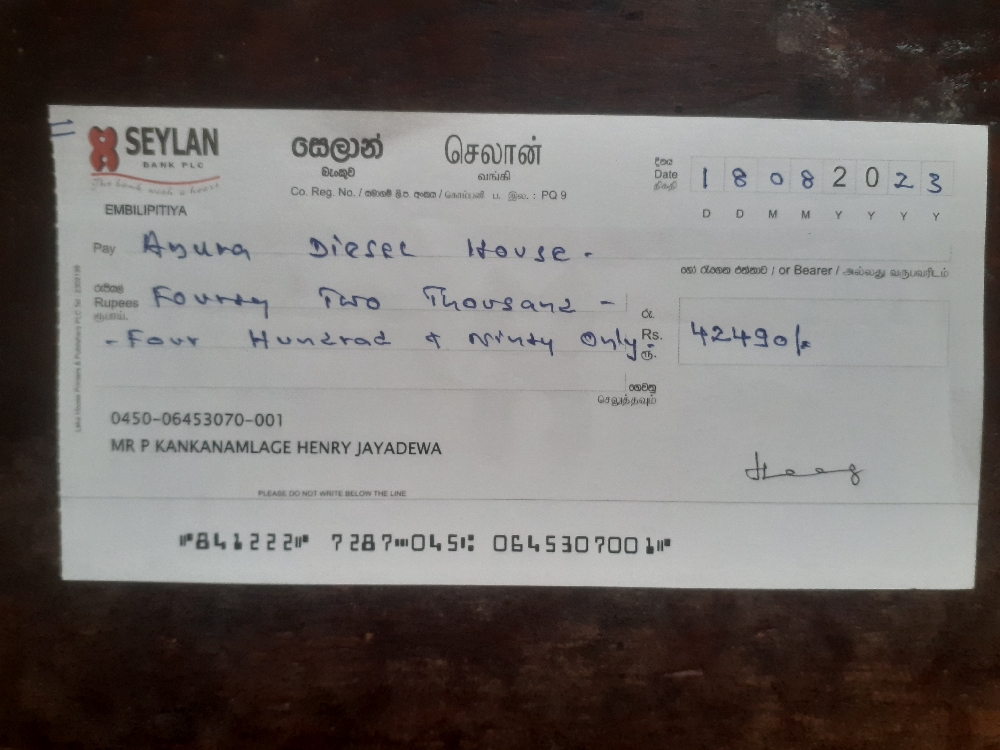 SEYLAN
BANK PLC
The bank with a heart
EMBILIPITIYA
සෙලාන් செலான்
බැංකුව வங்கி
Co. Reg. No. / සමාගම් ලි.ප. අංකය / கொம்பனி ப. இல. : PQ 9
දිනය
Date
திகதி
1 8 0 8 2 0 2 3
D D M M Y Y Y Y
Pay Anura Diesel House -
හෝ රැගෙන එන්නාට / or Bearer / அல்லது வருபவரிடம்
රුපියල්
Rupees
ரூபாய்.
Fourty Two Thousand -
- Four Hundrad & Ninty Only.
රු.
Rs.
ரூ.
42490/=
ගෙවනු
செலுத்தவும்
0450-06453070-001
MR P KANKANAMLAGE HENRY JAYADEWA
PLEASE DO NOT WRITE BELOW THE LINE
⑈841222⑈ 7287⑉045⑆ 0645307001⑈